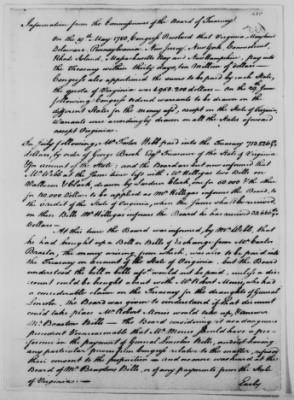 Information from the Commissioners of the Board of Treasury
On the 19th May 1780, Congress Resolved that Virginia, Maryland
Delaware, Pennsylvania, New Jersey, New York, Connecticut,
Rhode Island, Massachusetts Bay and New Hampshire, pay into
the Treasury within thirty days, ten Million of dollars —
Congress also apportioned the sums to be paid by each State,
the quota of Virginia was 1,953,200 dollars — On the
following Congress ordered warrants to be drawn on the
different States for the money afsd, except on the State of Virginia,
Warrants were accordingly drawn on all the States aforesd
except Virginia.
In July following, Mr Foster Webb paid into the Treasury
dollars, by order of George Brooke Esqr Treasurer of the State of Virginia
on account of the State; and the Board are but now informed that
Mr Webb at the same time left with Mr Hillegas two Bills on
Clark, drawn by Clark, one for 10.000 the other
for 20.000 Dollars to be applied as Mr Hillegas informs the Board, to
the credit of the State of Virginia, when the same shall be received
on these Bills Mr Hillegas informs the Board he has received
Dollars —
At this time the Board was informed by Mr Webb, that
he had brought up a Bill or Bills of Exchange from Mr Carter
Braxton, the money arising from which, was also to be paid into
the Treasury on account of the State of Virginia, but the Board
understood the bill or bills afsd would not be paid, unless a dis-
count could be brought about with Mr Robert Morris, who had
a considerable claim on the Treasury for the draughts of General
Lincoln, the Board was given to understand if that discount
could take place Mr Robert Morris would take up,
Mr Braxtons Bills — the Board considering it as a dangerous
precedent & unreasonable that Mr Morris should have a pre-
ference in the payment of General Lincolns Bills, and not having
any particular power from Congress relative to the matter, refused
their consent to the proposition and no sum was heard at the
Board of Mr Braxtons Bills, or of any payments from the State
of Virginia —
Early